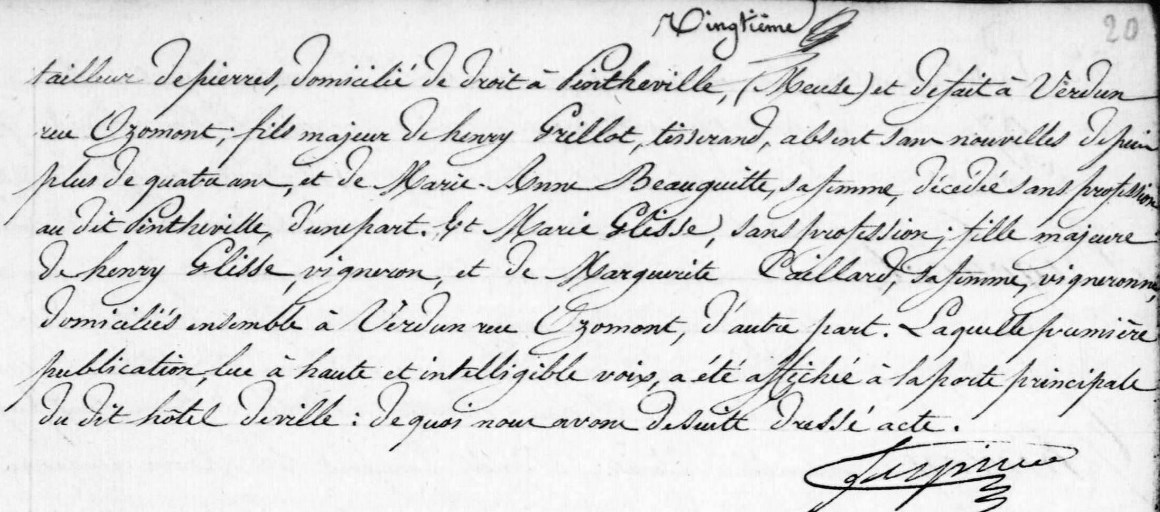 Vingtième
20
tailleur de pierres, domicilié de droit à Pintheville, (Meuse) et de fait à Verdun
rue Ozomont; fils majeur de henry Grillot, tisserand, absent sans nouvelles depuis
plus de quatre ans, et de Marie-Anne Beauguitte, sa femme, décédée sans profession
au dit Pintheville, d'une part. Et Marie Glisse, sans profession; fille majeure
de henry Glisse, vigneron, et de Marguerite Caillard, sa femme, vigneronne,
domiciliés ensemble à Verdun rue Ozomont, d'autre part. Laquelle première
publication, lue à haute et intelligible voix, a été affichée à la porte principale
du dit hôtel de ville : de quoi nous avons de suite dressé acte.